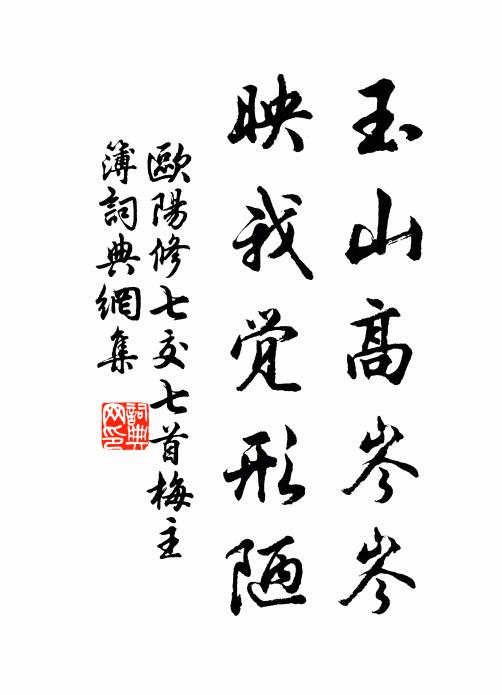 玉山高岑岑
映我觉形陋
歐陽修七交七首梅主
簿詞典網集
詞典网印